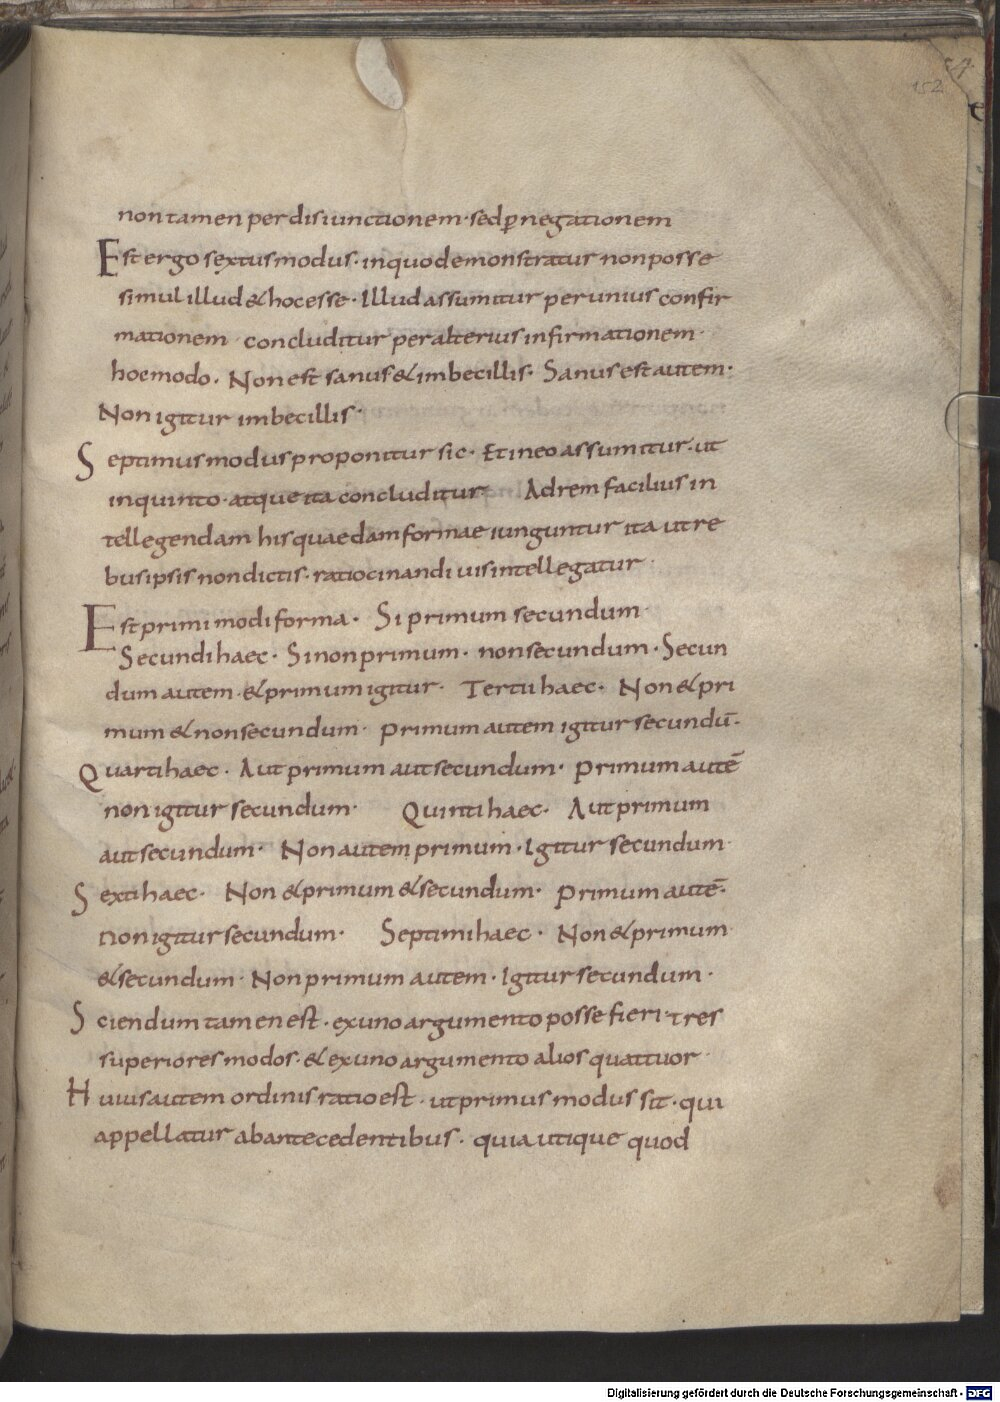 152
non tamen per disiunctionem · sed ꝑ negationem
Est ergo sextus modus · in quo demonstratur non posse
simul illud & hoc esse · Illud assumitur per unius confir
mationem · concluditur per alterius infirmationem ·
hoc modo · Non est sanus & imbecillis · Sanus est autem ·
Non igitur imbecillis ·
Septimus modus proponitur sic · Et in eo assumitur · ut
in quinto · atque ita concluditur Ad rem facilius in
tellegendam his quaedam formae iunguntur ita ut re
bus ipsis non dictis · ratiocinandi uis intellegatur ·
Est primi modi forma · Si primum secundum ·
Secundi haec · Si non primum · non secundum · Secun
dum autem · & primum igitur · Tertii haec · Non & pri
mum & non secundum · Primum autem igitur secundū ·
Quarti haec · Aut primum aut secundum · Primum autē
non igitur secundum · Quinti haec · Aut primum
aut secundum · Non autem primum · Igitur secundum ·
Sexti haec · Non & primum & secundum · Primum autē ·
non igitur secundum · Septimi haec · Non & primum
& secundum · Non primum autem · Igitur secundum ·
Sciendum tamen est · ex uno argumento posse fieri · tres
superiores modos · & ex uno argumento alios quattuor ·
Huius autem ordinis ratio est · ut primus modus sit · qui
appellatur ab antecedentibus · quia utique quod
Digitalisierung gefördert durch die Deutsche Forschungsgemeinschaft - DFG